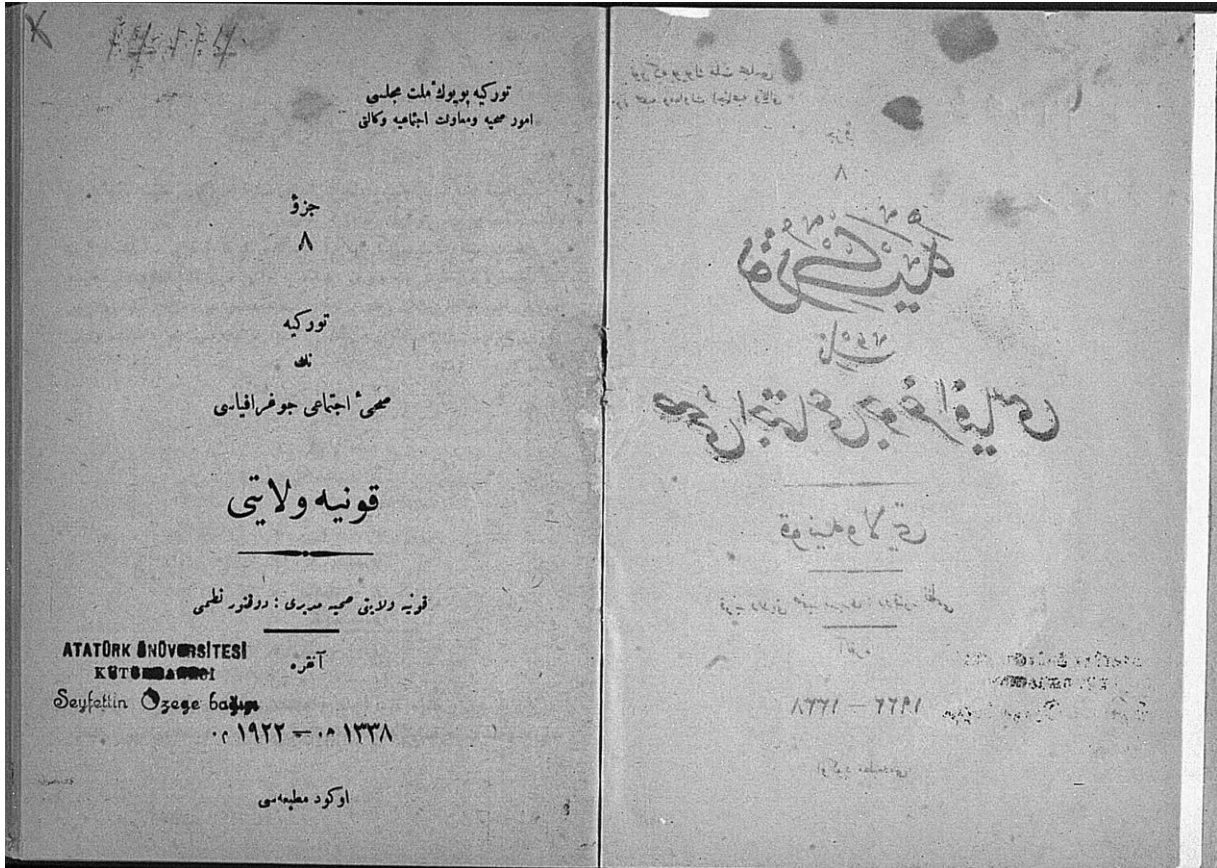 توركيه بويوك ملت مجلسى
امور صحيه ومعاونت اجتماعيه وكالتى
جزؤ
٨
توركيه
نك
صحىٔ اجتماعى جوغرافياسى
قونيه ولايتى
قونيه ولايتى صحيه مديرى : دوقتور نظمى
آنقره
ATATÜRK ÜNÜVERSİTESİ
KÜTÜBHANESİ
Seyfettin Özege bağışı
١٣٣٨ ه. — ١٩٢٢ م.
اوكود مطبعه‌سى